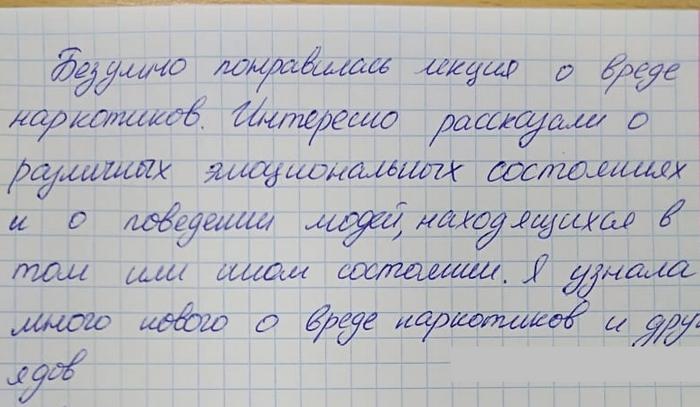 Безумно понравилась лекция о вреде
наркотиков. Интересно рассказали о
различных эмоциональных состояниях
и о поведении людей, находящихся в
том или ином состоянии. Я узнала
много нового о вреде наркотиков и дру
ядов